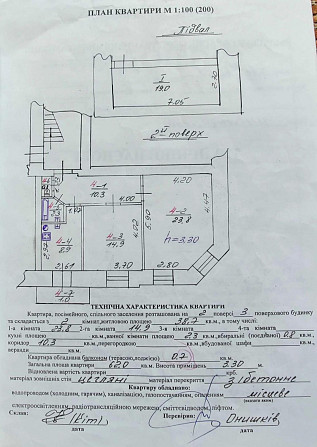 ПЛАН КВАРТИРИ М 1:100 (200)
Підвал
I
19.0
2.70
7.05
2й поверх
4-1
10.3
4.00
4.20
4-2
23.8
4.47
5.90
4.02
h=3.30
4-3
14.9
4-4
8.9
2.92
2.61
3.70
2.80
4-7
1.0
ТЕХНІЧНА ХАРАКТЕРИСТИКА КВАРТИРИ
Квартира, посімейного, спільного заселення розташована на 2 поверсі 3 поверхового будинку
та складається з 2 кімнат, житловою площею 38,7 кв.м., в тому числі:
1-а кімната 23,8 2-га кімната 14,9 3-я кімната 4-та кімната
кухні площею кв.м., ванної кімнати площею 2.3 кв.м., вбиральні (поєднаної) 0.8 кв.м.,
коридор 10,3 кв.м., перегородкою кв.м., вбудованої шафи кв.м.,
веранди кв.м.
Квартира обладнана балконом (терасою, лоджією) 0.7 кв.м.
Загальна площа квартири 62.0 кв.м. Висота приміщень 3.30 м.
Відновлена вартість квартири крб.
матеріал зовнішніх стін цегляні матеріал перекриття з/бетонне
Квартиру обладнано:
водопроводом (холодним, гарячим), каналізацією, газопостачанням, опаленням місцеве
електроосвітленням, радіотрансляційною мережею, сміттєвідводом, ліфтом.
Склав: Перевірив: Онишків